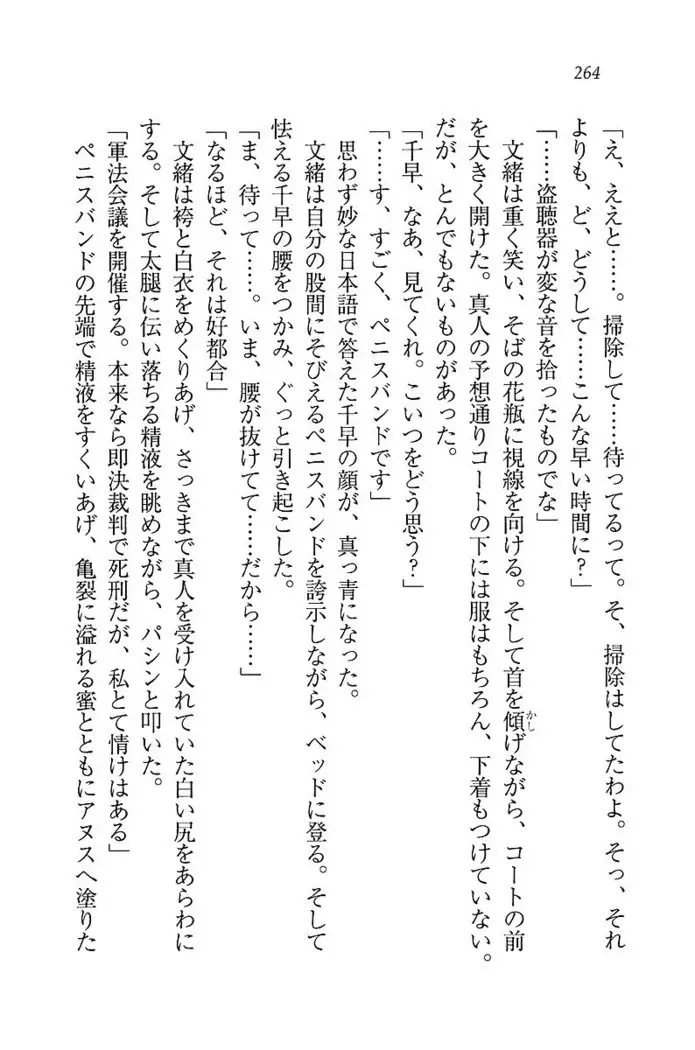 264
「え、ええと……。掃除して……待ってるって。そ、掃除はしてたわよ。そっ、それ
よりも、ど、どうして……こんな早い時間に？」
「……盗聴器が変な音を拾ったものでな」
文緒は重く笑い、そばの花瓶に視線を向ける。そして首を傾げながら、コートの前
かし
を大きく開けた。真人の予想通りコートの下には服はもちろん、下着もつけていない。
だが、とんでもないものがあった。
「千早、なあ、見てくれ。こいつをどう思う？」
「……す、すごく、ペニスバンドです」
思わず妙な日本語で答えた千早の顔が、真っ青になった。
文緒は自分の股間にそびえるペニスバンドを誇示しながら、ベッドに登る。そして
怯える千早の腰をつかみ、ぐっと引き起こした。
「ま、待って……。いま、腰が抜けてて……だから……」
「なるほど、それは好都合」
文緒は袴と白衣をめくりあげ、さっきまで真人を受け入れていた白い尻をあらわに
する。そして太腿に伝い落ちる精液を眺めながら、パシンと叩いた。
「軍法会議を開催する。本来なら即決裁判で死刑だが、私とて情けはある」
ペニスバンドの先端で精液をすくいあげ、亀裂に溢れる蜜とともにアヌスへ塗りた